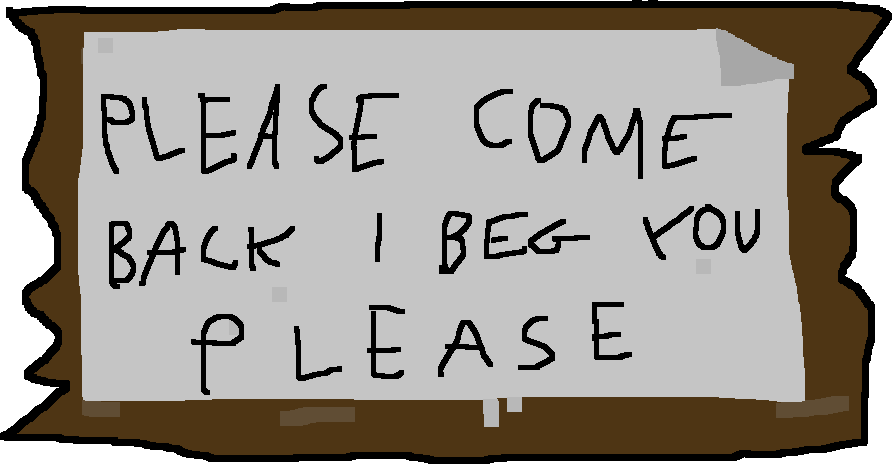 PLEASE COME
BACK I BEG YOU
PLEASE